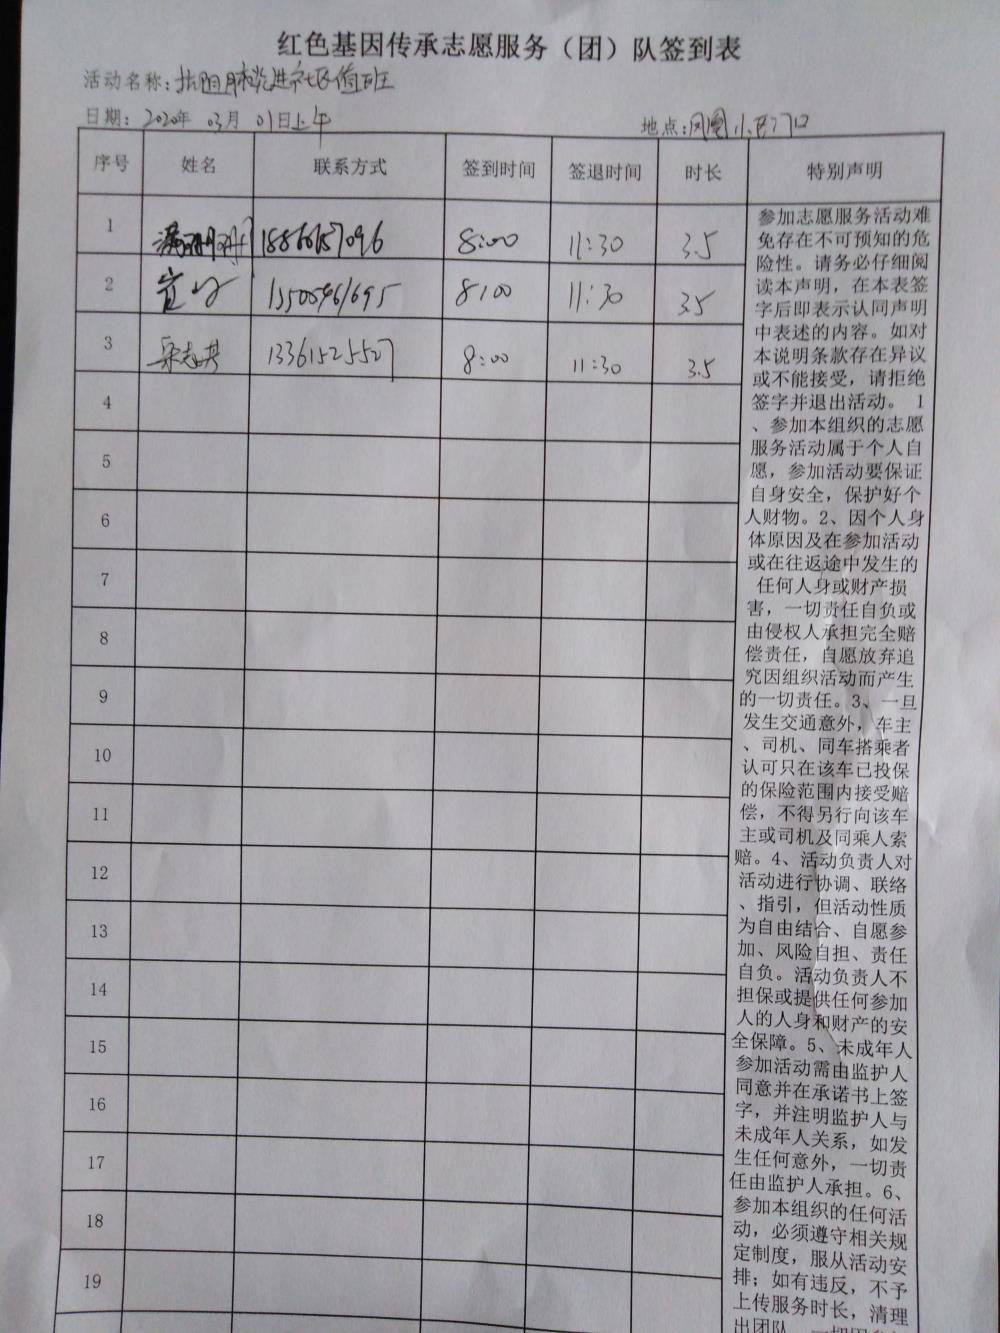 红色基因传承志愿服务（团）队签到表
活动名称：抗阻肺炎进社区值班
日期：2020年 03月 01日上午 地点：凤凰小区门口
序号 姓名 联系方式 签到时间 签退时间 时长 特别声明
1 8:00 11:30 3.5
2 8:00 11:30 3.5
3 13361525527 8:00 11:30 3.5
4
5
6
7
8
9
10
11
12
13
14
15
16
17
18
19
参加志愿服务活动难
免存在不可预知的危
险性。请务必仔细阅
读本声明，在本表签
字后即表示认同声明
中表述的内容。如对
本说明条款存在异议
或不能接受，请拒绝
签字并退出活动。 1
、参加本组织的志愿
服务活动属于个人自
愿，参加活动要保证
自身安全，保护好个
人财物。2、因个人身
体原因及在参加活动
或在往返途中发生的
任何人身或财产损
害，一切责任自负或
由侵权人承担完全赔
偿责任，自愿放弃追
究因组织活动而产生
的一切责任。3、一旦
发生交通意外，车主
、司机、同车搭乘者
认可只在该车已投保
的保险范围内接受赔
偿，不得另行向该车
主或司机及同乘人索
赔。4、活动负责人对
活动进行协调、联络
、指引，但活动性质
为自由结合、自愿参
加、风险自担、责任
自负。活动负责人不
担保或提供任何参加
人的人身和财产的安
全保障。5、未成年人
参加活动需由监护人
同意并在承诺书上签
字，并注明监护人与
未成年人关系，如发
生任何意外，一切责
任由监护人承担。6、
参加本组织的任何活
动，必须遵守相关规
定制度，服从活动安
排；如有违反，不予
上传服务时长，清理
出团队，一切因参加